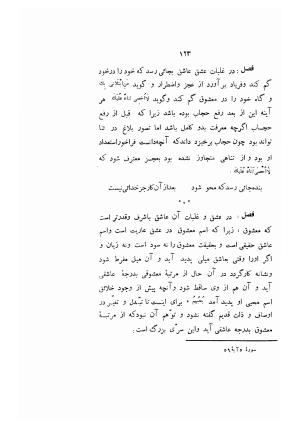 ۱۲۳
فصل: در غلبات عشق عاشق بجائی رسد که خود را درخود
گم کند وفریاد برآورد از عجز واضطرار و گوید
و گاه خود را در معشوق گم کند وگوید لا أحصی ثناء علیک هر
آینه این از بعد رفع حجاب بوده باشد زیرا که قبل از رفع
حجاب اگرچه معرفت بدو کامل باشد اما تصور بلاغ در ثنا
تواند بود چون حجاب برخیزد داندکه آنچه‌دانست فراخوراستعداد
او بود و از تناهی متجاوز نشده بود بعجز معترف شود که
لا أحصی ثناء علیک
بنده‌جائی رسدکه محو شود بعدازآن کارجزخدائی‌نیست
* * *
فصل: در عشق و غلبات آن عاشق باشرف وقدرتر است
که معشوق ، زیرا که اسم معشوق در عشق عاریت است واسم
عاشق حقیقی است و بحقیقت معشوق را نه سود است ونه زیان و
اگر او را وقتی بعاشق میلی پدید آید و آن میل مفرط شود
ونشانه کارگردد در آن حال از مرتبهٔ معشوقی بدرجهٔ عاشقی
آید و آن هم از وی ساقط شود وآنچه پیش از وجود خلایق
اسم محبی او پدید آمد یُحِبُّهُم * برای اینست تا تبدل و تغیّر در
اوصاف و ذات قدیم گفته نشود و توهم آن نبودکه از مرتبهٔ
معشوق بدرجه عاشقی آید واین سرّی بزرگ است :
سورهٔ